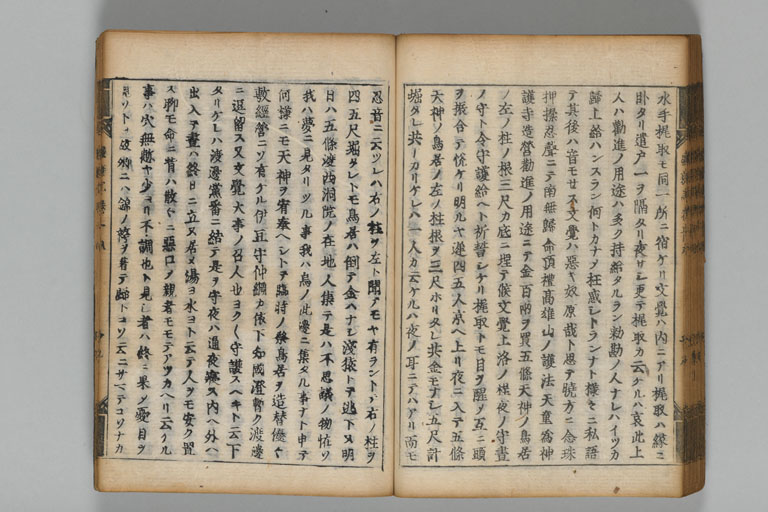 水手梶取モ同一所ニ宿ケリ文覺ハ内ニアリ梶取ハ縁ニ
臥タリ遣戸一ヲ隔タリ夜ヨシ更テ梶取カ云ケルハ哀此上
人ハ勸進ノ用途ハ多ク持給タルラン勅勘ノ人ナレハイツカ
歸上給ハンスラン何トカナノ枉惑シトランナト樣々ニ私語
テ其後ハ音モセス文覺ハ惡キ奴原哉ト思テ曉方ニ念珠
押揉忍聲ニテ南無歸命頂禮高雄山ノ護法天童當神
護寺造營勸進ノ用途ニテ金百兩ヲ買五條天神ノ鳥居
ノ左ノ柱ノ根三尺カ底ニ埋テ候文覺上洛ノ程夜ノ守晝
ノ守ト令守護給ヘト祈誓シケリ梶取トモ目ヲ醒ソ互ニ頭
ヲ振合テ恠ケリ明ルヤ遅四五人京ヘ上リ夜ニ入テ五條
天神ノ鳥居ノ左ノ柱根ヲ三尺ホリタレ共金モナシ五尺計
堀タレ共ナカリケレハ一人カ云ケルハ夜ノ耳ニテハアリ南モ
忍音ニ云ツレハ右ノ柱ヲ左ト聞テモヤ有ラントテ右ノ柱ヲ
四五尺堀タレトモ鳥居ハ倒テ金ハナシ淺猿トテ逃下ヌ明
日ハ五條渡西洞院ノ在地人集テ是ハ不思議ノ物恠ソ
我ハ夢ニ見タリツル事我ハ烏ノ此邊ニ集タル事ナト申テ
何樣ニモ天神ヲ宥奉ヘシトテ臨時ノ祭鳥居ヲ造替優々
敷經營ニソ有ケル伊豆守仲綱カ依下知國澄暫ク渡邊
ニ逗留ス又文覺大事ノ召人也ヨク〱守護スヘキト云下
タリケレハ渡邊黨番ニ結テ是ヲ守夜ハ通夜ス内ヘ外ヘ
出入テ晝ハ終日ニ立ヌ居ヌ湯ヨ水ヨト云テ人ヲモ安ク置
ス聊モ命ニ背ハ散々ニ惡口ヲ親者モモテアツカヘリ云ケル
事ハ穴無慙ヤ少ヨリ不調也ト見シ者ハ終ニ果メ憂目ヲ
ニハ錦ノ袴ヲ着テ歸トコソ云ニサハテコソナカ